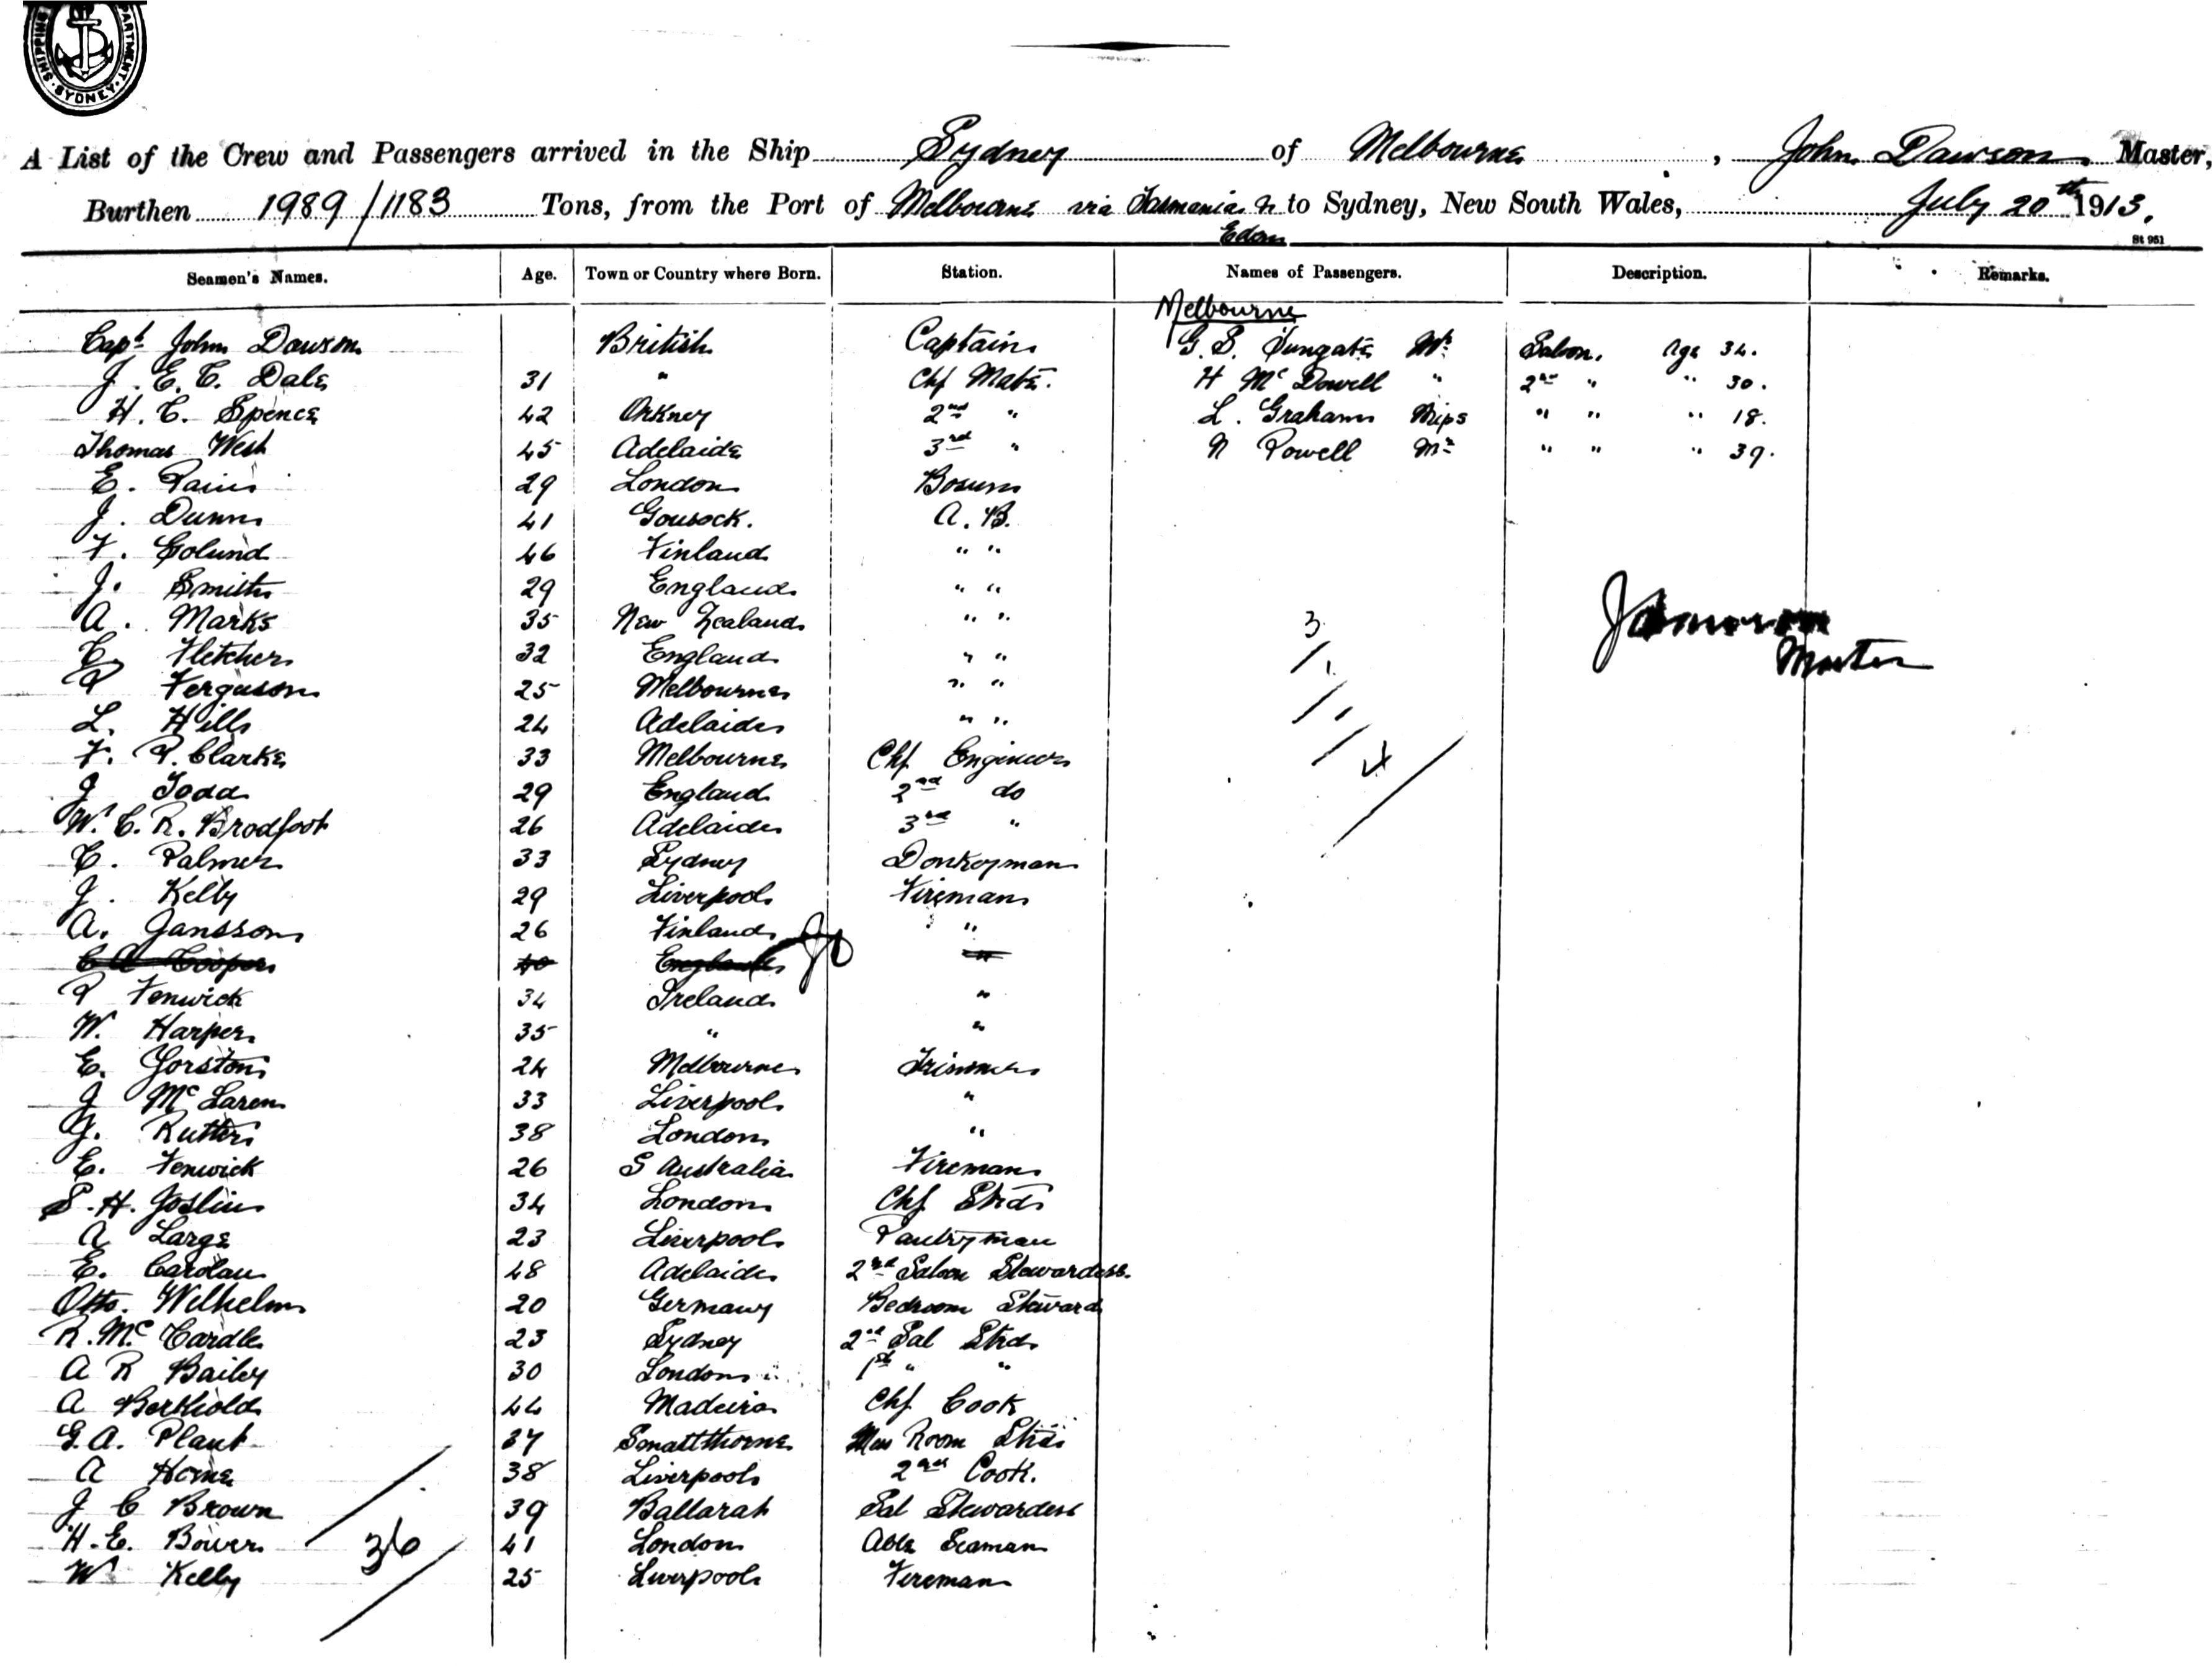 SHIPPING DEPARTMENT. SYDNEY.
A List of the Crew and Passengers arrived in the Ship Sydney of Melbourne, John Dawson Master,
Burthen 1989/1183 Tons, from the Port of Melbourne via Tasmania & to Sydney, New South Wales, July 20th 1913.
Eden
St 951
Seamen's Names. Age. Town or Country where Born. Station. Names of Passengers. Description. Remarks.
Melbourne
Capt John Dawson British Captain G. S. Mr Saloon. Age 34.
J. E. C. Dale 31 " Chf Mate. H McDowell " 2nd " " 30.
H. C. Spence 42 Orkney 2nd " L. Graham Miss " " " 18.
Thomas West 45 Adelaide 3rd " N Powell Mr " " " 39.
E. 29 London Bosun
J. Dunn 41 Gourock. A. B.
F. 46 Finland " "
J. Smith 29 England " "
A. Marks 35 New Zealand " "
3
C. Fletcher 32 England " "
Master
P Ferguson 25 Melbourne " "
L. Hills 24 Adelaide " "
F. P. Clarke 33 Melbourne Chf Engineer
1
4
J Todd 29 England 2nd do
W. C. R. Brodfoot 26 Adelaide 3rd "
C. Palmer 33 Sydney Donkeyman
J. Kelly 29 Liverpool Fireman
A. Jansson 26 Finland "
C A Cooper 40 England "
P Fenwick 34 Ireland "
W. Harper 35 " "
E. Gorston 24 Melbourne Trimmer
J McLaren 33 Liverpool "
G. Rutter 38 London "
E. Fenwick 26 S Australia Fireman
S. H. Joslin 34 London Chf Strd
A Large 23 Liverpool Pantryman
E. Carolan 48 Adelaide 2nd Saloon Stewardess.
Otto. Wilhelm 20 Germany Bedroom Steward
R. McCardle 23 Sydney 2nd Sal Strd
A R Bailey 30 London 1st " "
A Berthold 44 Madeira Chf Cook
G. A. Plant 37 Smallthorne Mess Room Strd
A Horne 38 Liverpool 2nd Cook.
J C Brown 39 Ballarat Sal Stewardess
H. E. Bower 41 London Able Seaman
36
W Kelly 25 Liverpool Fireman